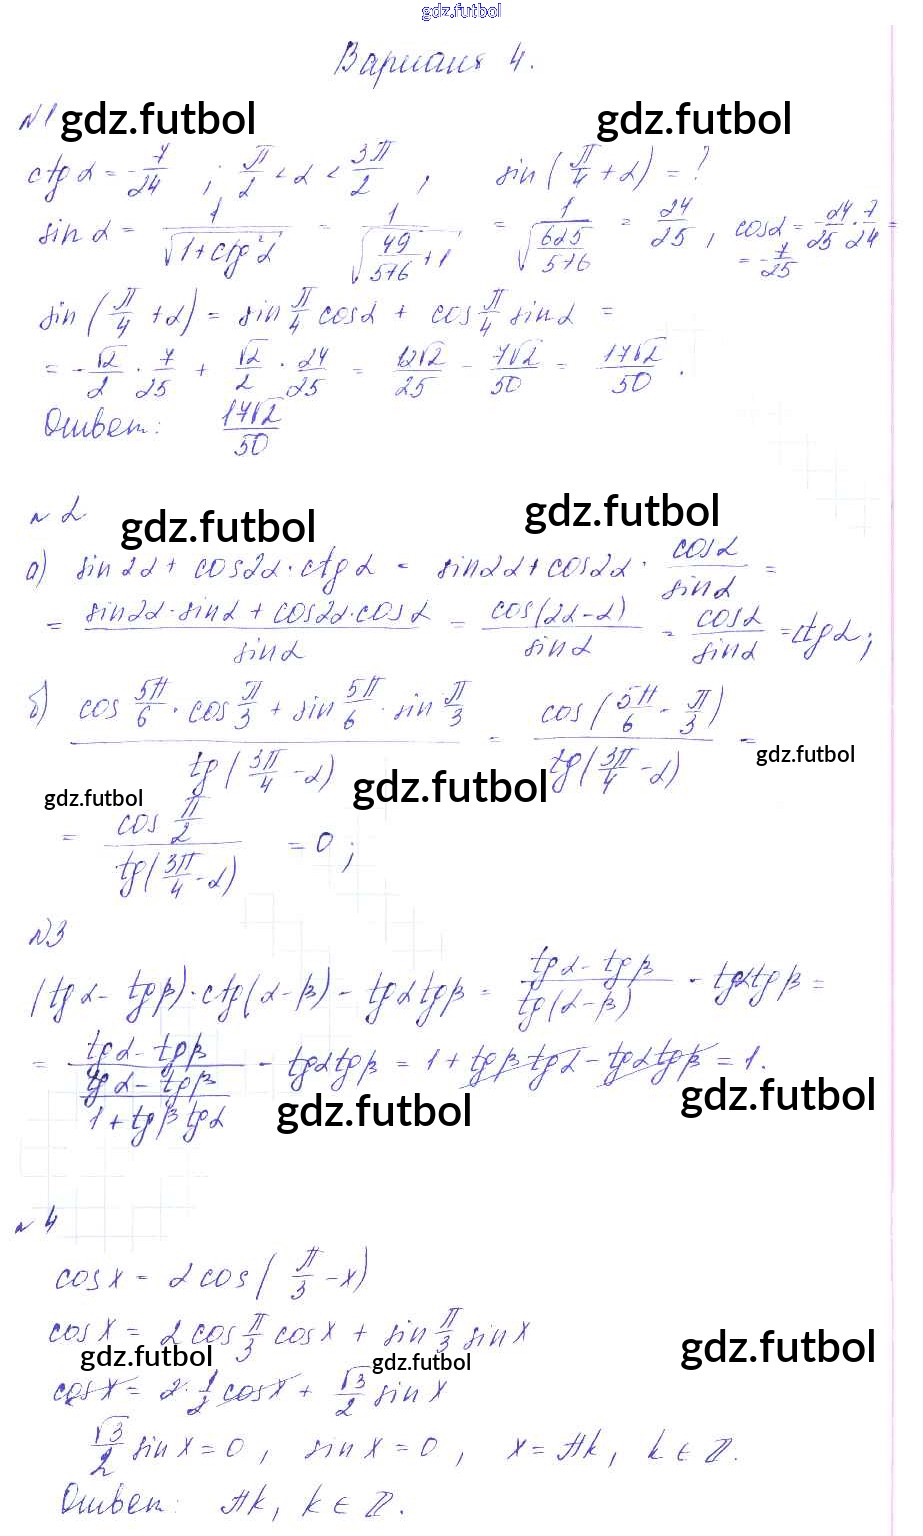 gdz.futbol
Вариант 4.
№1 gdz.futbol gdz.futbol
ctg α = -7/24 ; π/2 < α < 3π/2 , sin(π/4 + α) = ?
sin α = 1/√(1+ctg²α) = 1/√(49/576 + 1) = 1/√(625/576) = 24/25, cosα = -24/25 · 7/24 =
= -7/25
sin(π/4 + α) = sin π/4 cosα + cos π/4 sinα =
= -√2/2 · 7/25 + √2/2 · 24/25 = 12√2/25 - 7√2/50 = 17√2/50 .
Ответ: 17√2/50
№2 gdz.futbol gdz.futbol
а) sin2α + cos2α · ctgα = sin2α + cos2α · cosα/sinα =
= (sin2α · sinα + cos2α · cosα)/sinα = cos(2α-α)/sinα = cosα/sinα = ctgα;
б) (cos 5π/6 · cos π/3 + sin 5π/6 · sin π/3)/tg(3π/4 - α) = cos(5π/6 - π/3)/tg(3π/4 - α) =
gdz.futbol gdz.futbol gdz.futbol
= cos π/2 / tg(3π/4 - α) = 0 ;
№3
(tgα - tgβ) · ctg(α-β) - tgα tgβ = (tgα - tgβ)/tg(α-β) - tgα tgβ =
= (tgα - tgβ)/((tgα - tgβ)/(1 + tgβ tgα)) - tgα tgβ = 1 + tgβ tgα - tgα tgβ = 1.
gdz.futbol gdz.futbol
№4
cosx = 2cos(π/3 - x)
cosx = 2cos π/3 cosx + sin π/3 sinx
gdz.futbol gdz.futbol gdz.futbol
cosx = 2 · 1/2 cosx + √3/2 sinx
√3/2 sinx = 0 , sinx = 0 , x = πk, k ∈ Z.
Ответ: πk, k ∈ Z.